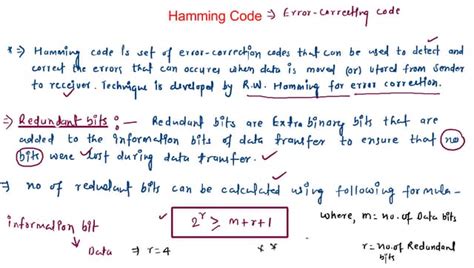 Hamming Code ⇒ Error-correcting code
* ⇒ Hamming code is set of error-correction codes that can be used to detect and
correct the errors that can occures when data is moved (or) stored from sender
to receiver. Technique is developed by R.W. Hamming for error correction.
⇒ Redundant bits :- Redundant bits are Extra binary bits that are
added to the information bits of data transfer to ensure that no
bits were lost during data transfer.
⇒ no of redundant bits can be calculated using following formula-
2^r ≥ m+r+1
where, m = no. of Data bits
r = no. of Redundant
bits
information bit
Data ⇒ r=4